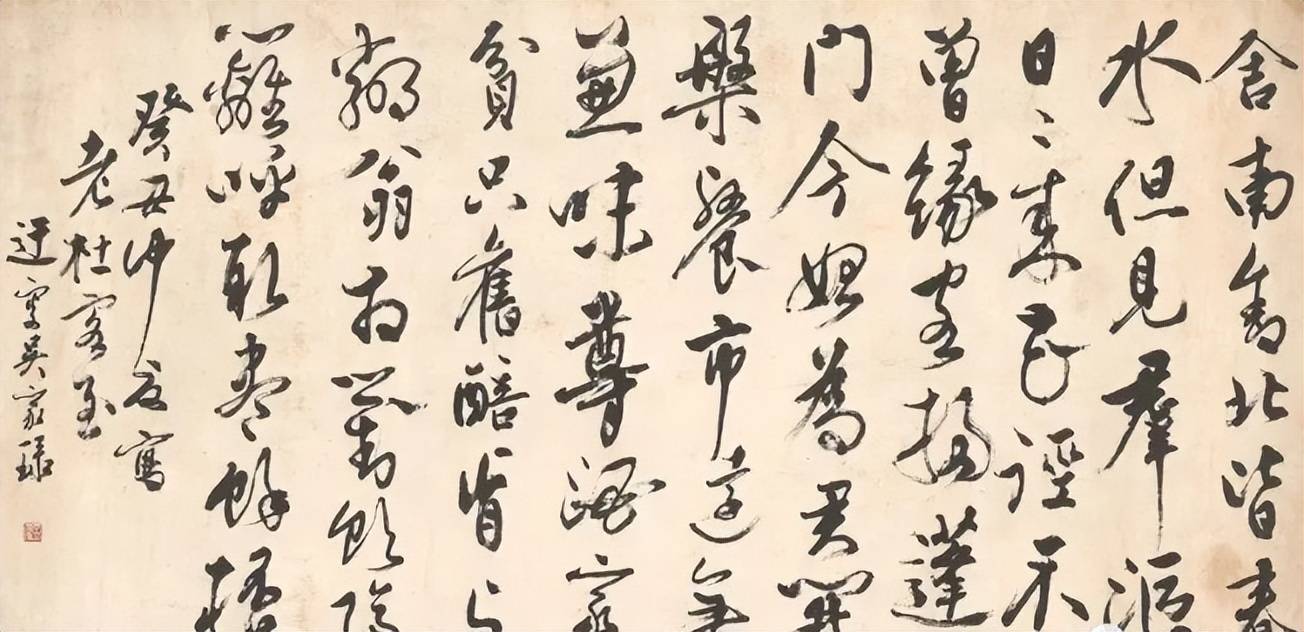 舍南舍北皆春
水但見群漚
日日来花徑不
曾緣客掃蓬
門今始為君開
槃餐市遠無
兼味尊酒家
貧只舊醅肯与
鄰翁相對飲隔
籬呼取盡餘桮
癸丑仲夏寫
老杜客至
迂叟吳家琭